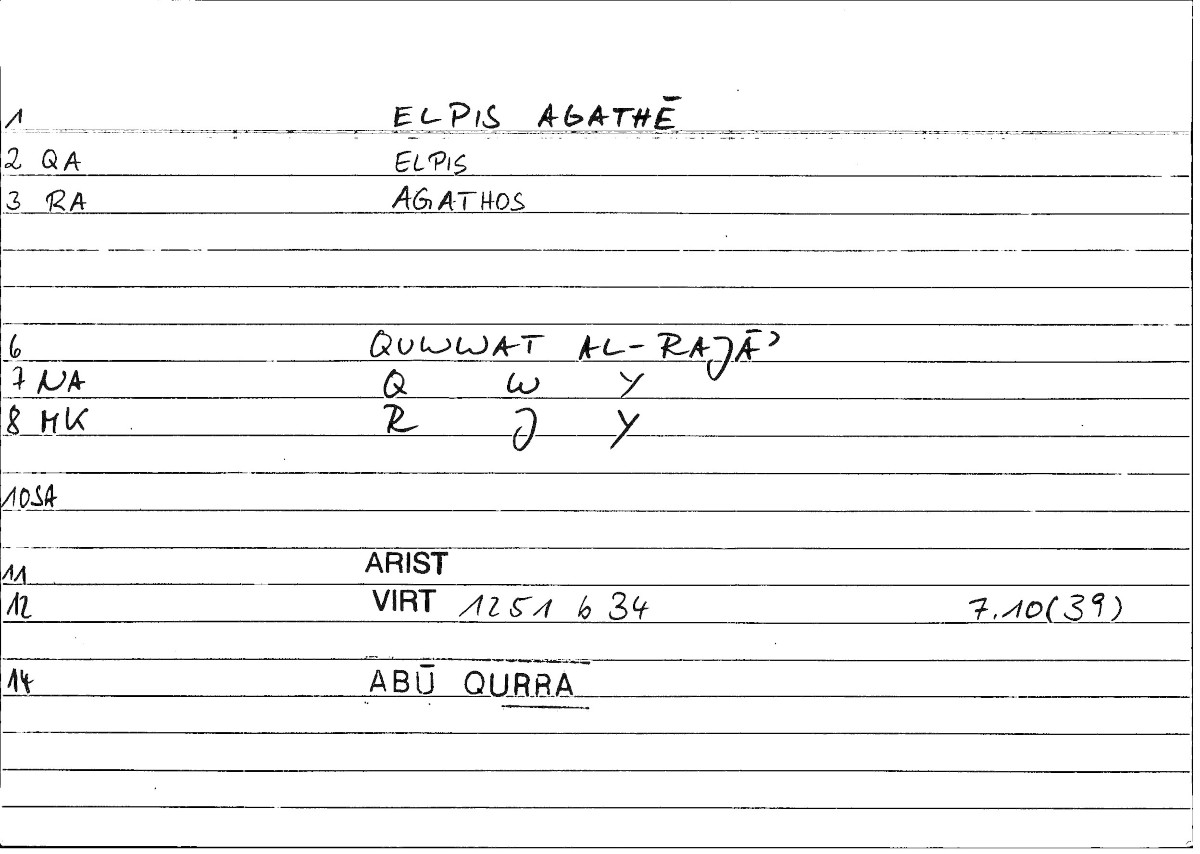 1 ELPIS AGATHĒ
2 QA ELPIS
3 RA AGATHOS
6 QUWWAT AL-RAJĀʾ
7 NA Q W Y
8 MK R J Y
10 SA
11 ARIST
12 VIRT 1251 b 34 7.10(39)
14 ABŪ QURRA